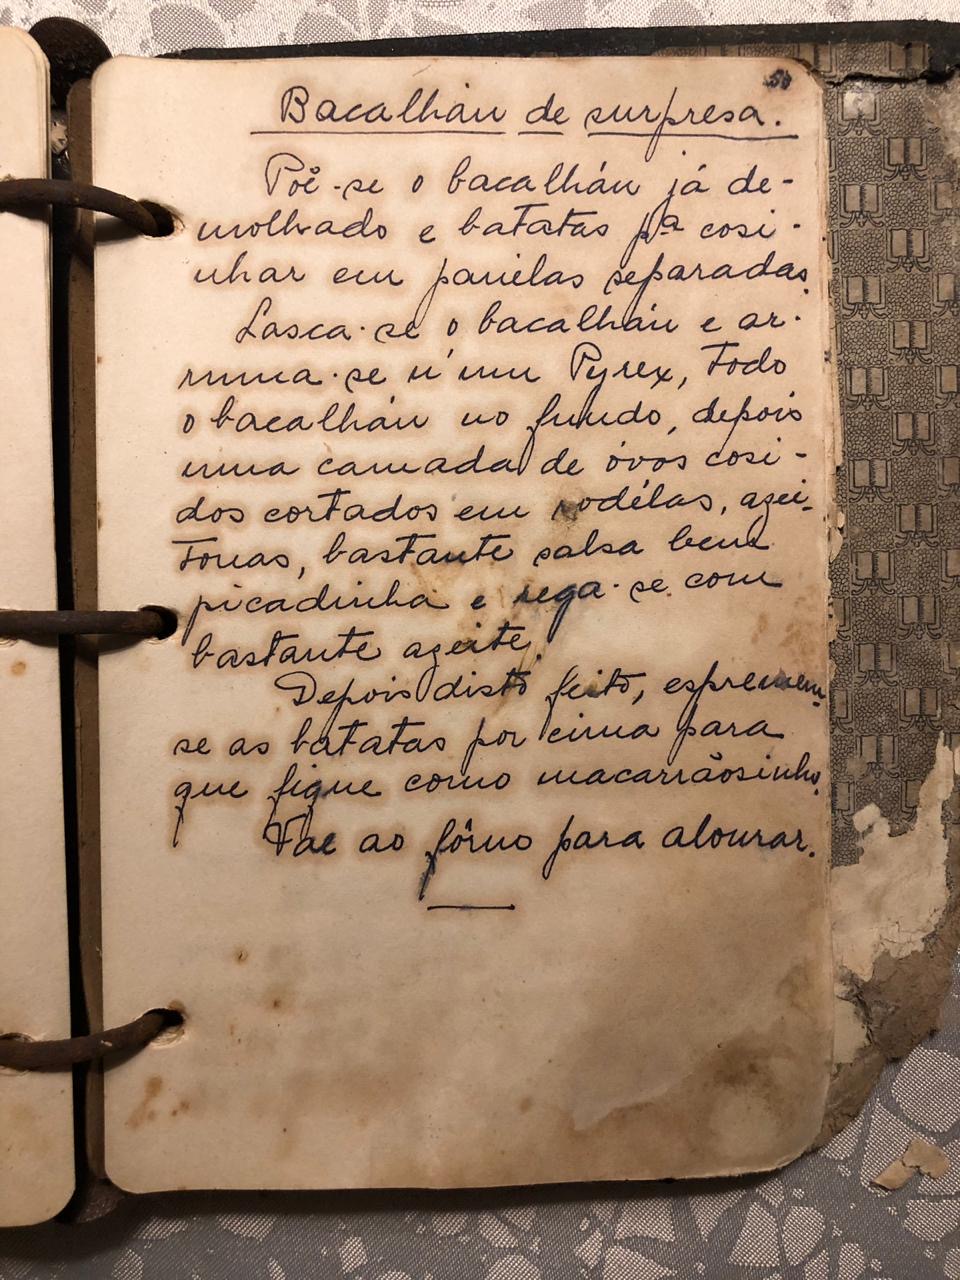 50
Bacalháu de surpresa.
Põi-se o bacalháu já de-
molhado e batatas pª cosi-
nhar em panelas separadas.
Lasca-se o bacalháu e ar-
ruma-se n'um Pyrex, todo
o bacalháu no fundo, depois
uma camada de óvos cosi-
dos cortados em rodélas, azei-
tonas, bastante salsa bem
picadinha e rega-se com
bastante azeite.
Depois disto feito, espremem-
se as batatas por cima para
que fique como macarrãosinho.
Vae ao fôrno para alourar.